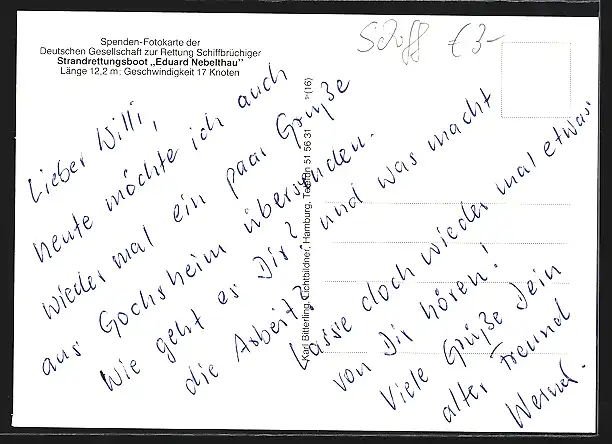 Spenden-Fotokarte der
Deutschen Gesellschaft zur Rettung Schiffbrüchiger
Strandrettungsboot „Eduard Nebelthau"
Länge 12,2 m; Geschwindigkeit 17 Knoten
Schiff € 3-
Lieber Willi,
heute möchte ich auch
wieder mal ein paar Grüße
aus Gochsheim übersenden.
Wie geht es Dir? und was macht
die Arbeit?
Lasse doch wieder mal etwas
von Dir hören!
Viele Grüße Dein
alter Freund
Werner.
Karl Bitterling, Lichtbildner, Hamburg, Telefon 51 56 31 (16)